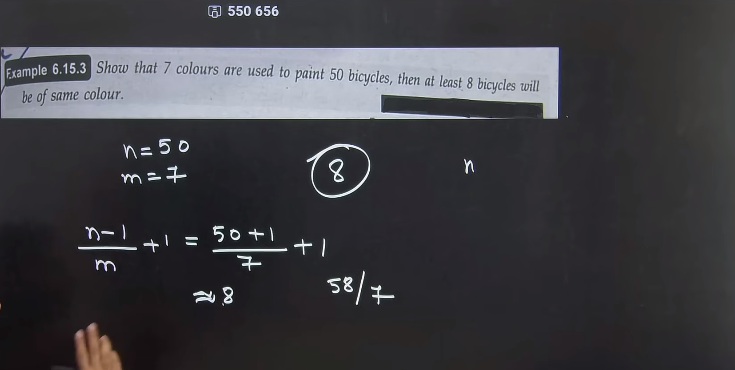 550 656
Example 6.15.3 Show that 7 colours are used to paint 50 bicycles, then at least 8 bicycles will
be of same colour.
n = 50
m = 7
8
n
n-1/m + 1 = 50+1/7 + 1
≈ 8
58/7